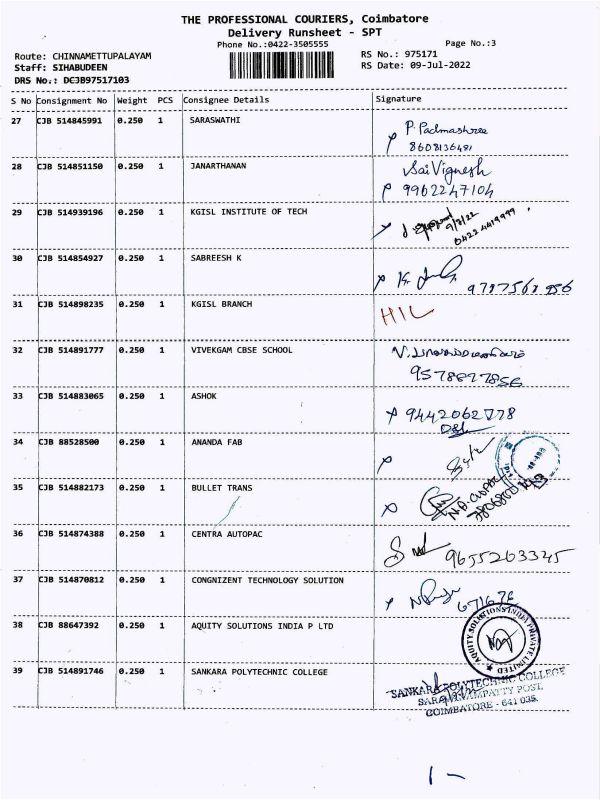 THE PROFESSIONAL COURIERS, Coimbatore
Delivery Runsheet - SPT
Phone No.:0422-3505555
Page No.:3
Route: CHINNAMETTUPALAYAM
RS No.: 975171
Staff: SIHABUDEEN
RS Date: 09-Jul-2022
DRS No.: DCJB97517103
S No Consignment No Weight PCS Consignee Details Signature
27 CJB 514845991 0.250 1 SARASWATHI
P. Padmashree
8608136481
28 CJB 514851150 0.250 1 JANARTHANAN
Sai Vignesh
9962247104
29 CJB 514939196 0.250 1 KGISL INSTITUTE OF TECH
9/7/22
0422 4419999
30 CJB 514854927 0.250 1 SABREESH K
31 CJB 514898235 0.250 1 KGISL BRANCH
HIL
32 CJB 514891777 0.250 1 VIVEKGAM CBSE SCHOOL
9578897856
33 CJB 514883065 0.250 1 ASHOK
9442062778
34 CJB 88528500 0.250 1 ANANDA FAB
35 CJB 514882173 0.250 1 BULLET TRANS
36 CJB 514874388 0.250 1 CENTRA AUTOPAC
9655203345
37 CJB 514870812 0.250 1 CONGNIZENT TECHNOLOGY SOLUTION
671676
38 CJB 88647392 0.250 1 AQUITY SOLUTIONS INDIA P LTD
AQUITY SOLUTIONS INDIA PRIVATE LIMITED
39 CJB 514891746 0.250 1 SANKARA POLYTECHNIC COLLEGE
SANKARA POLYTECHNIC COLLEGE
SARAVANAMPATTY POST,
COIMBATORE - 641 035.